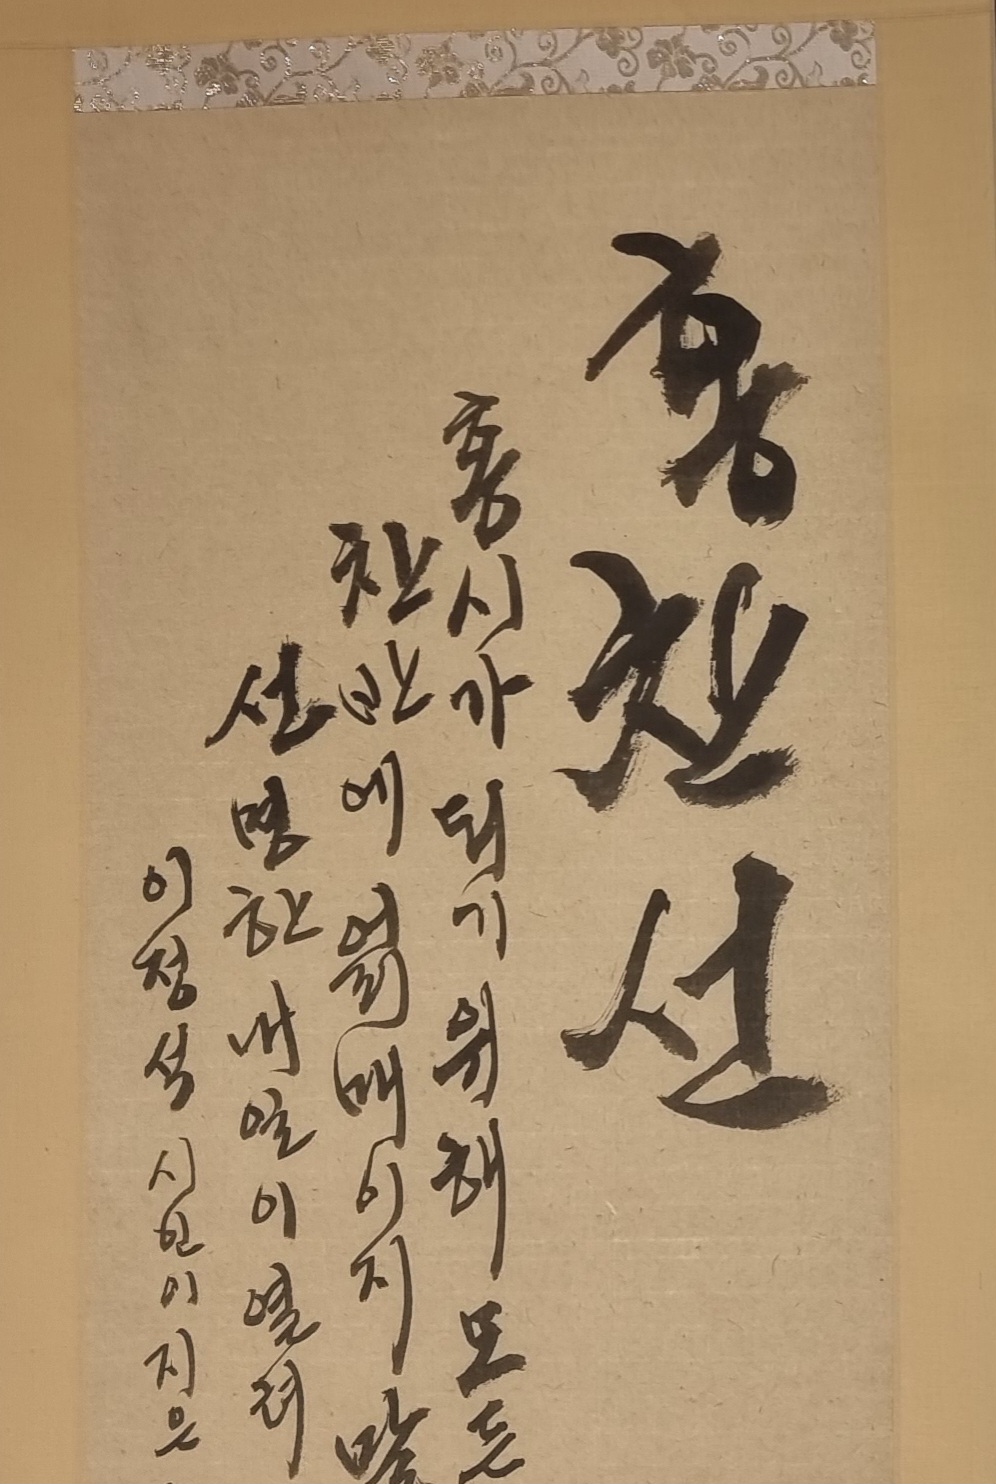 홍찬선
홍시가 되기 위해 모든
찬반에 얽매이지 말
선명한 내일이 열려
이정석 시인이 지은